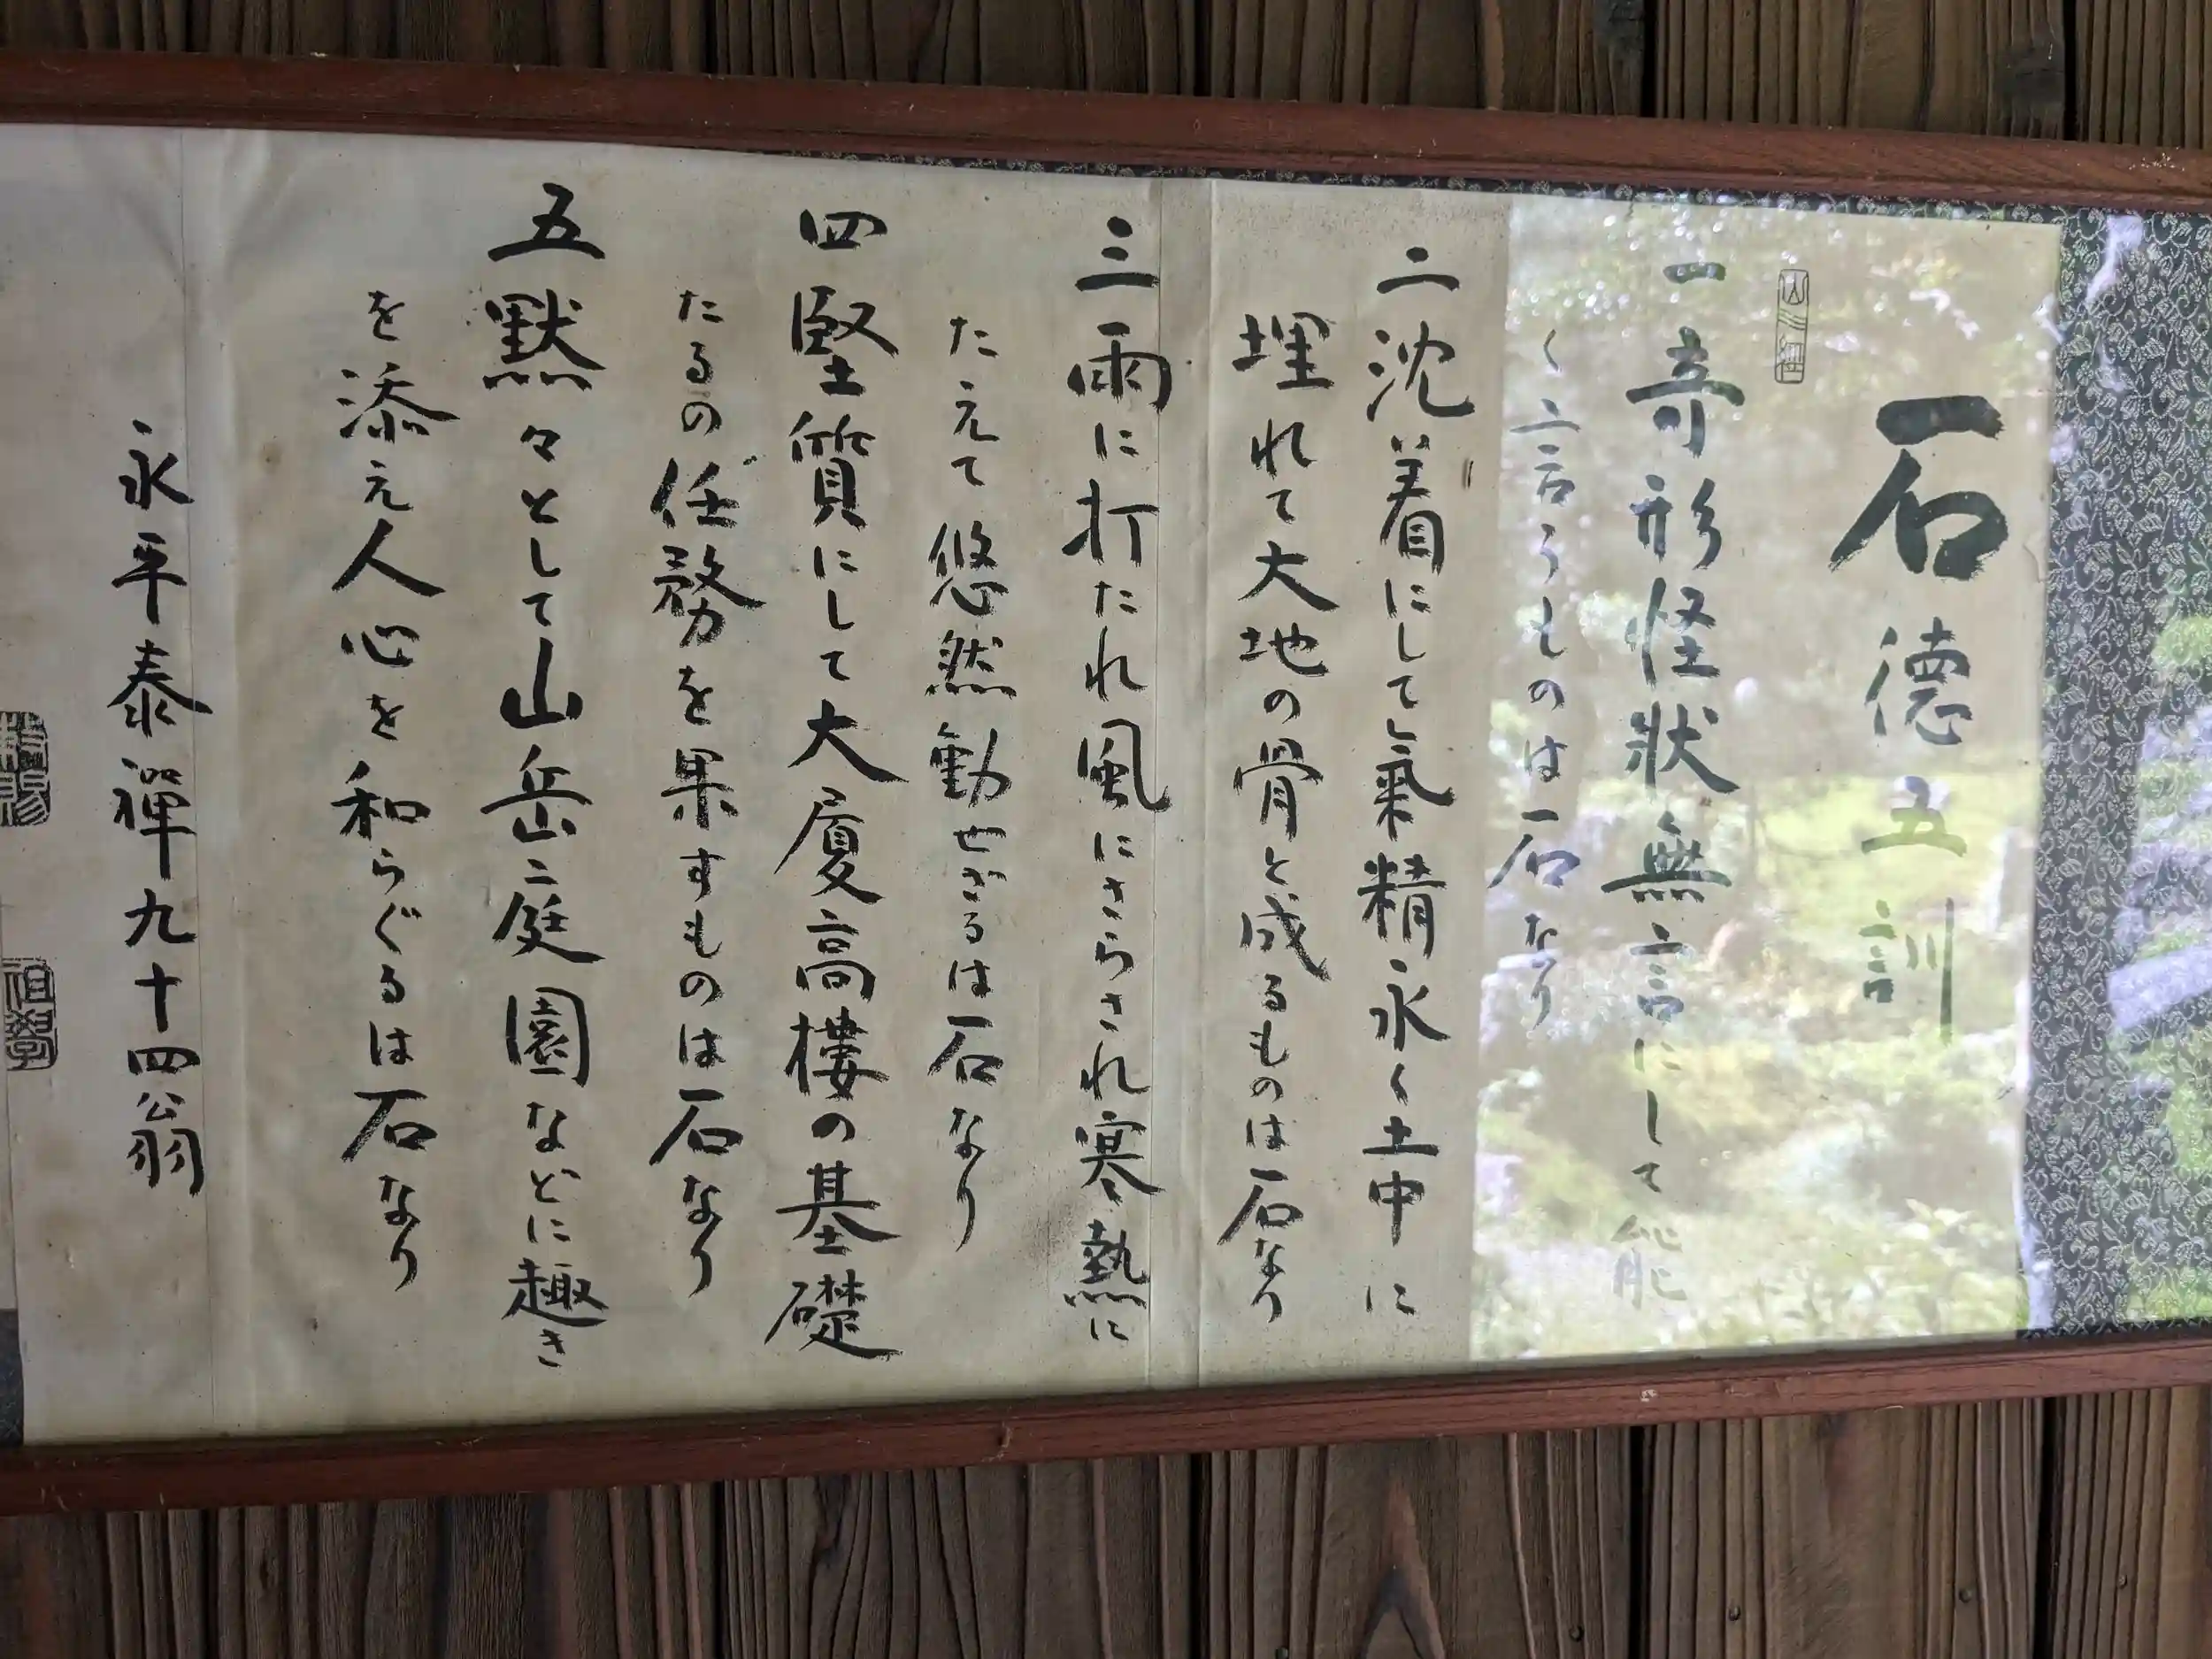 石德五訓
一 奇形怪狀無言にして能
く言うものは石なり
二 沈着にして氣精永く土中に
埋れて大地の骨と成るものは石なり
三 雨に打たれ風にさらされ寒熱に
たえて悠然動せざるは石なり
四 堅質にして大厦高樓の基礎
たるの任務を果すものは石なり
五 默々として山岳庭園などに趣き
を添え人心を和らぐるは石なり
永平泰禪九十四翁